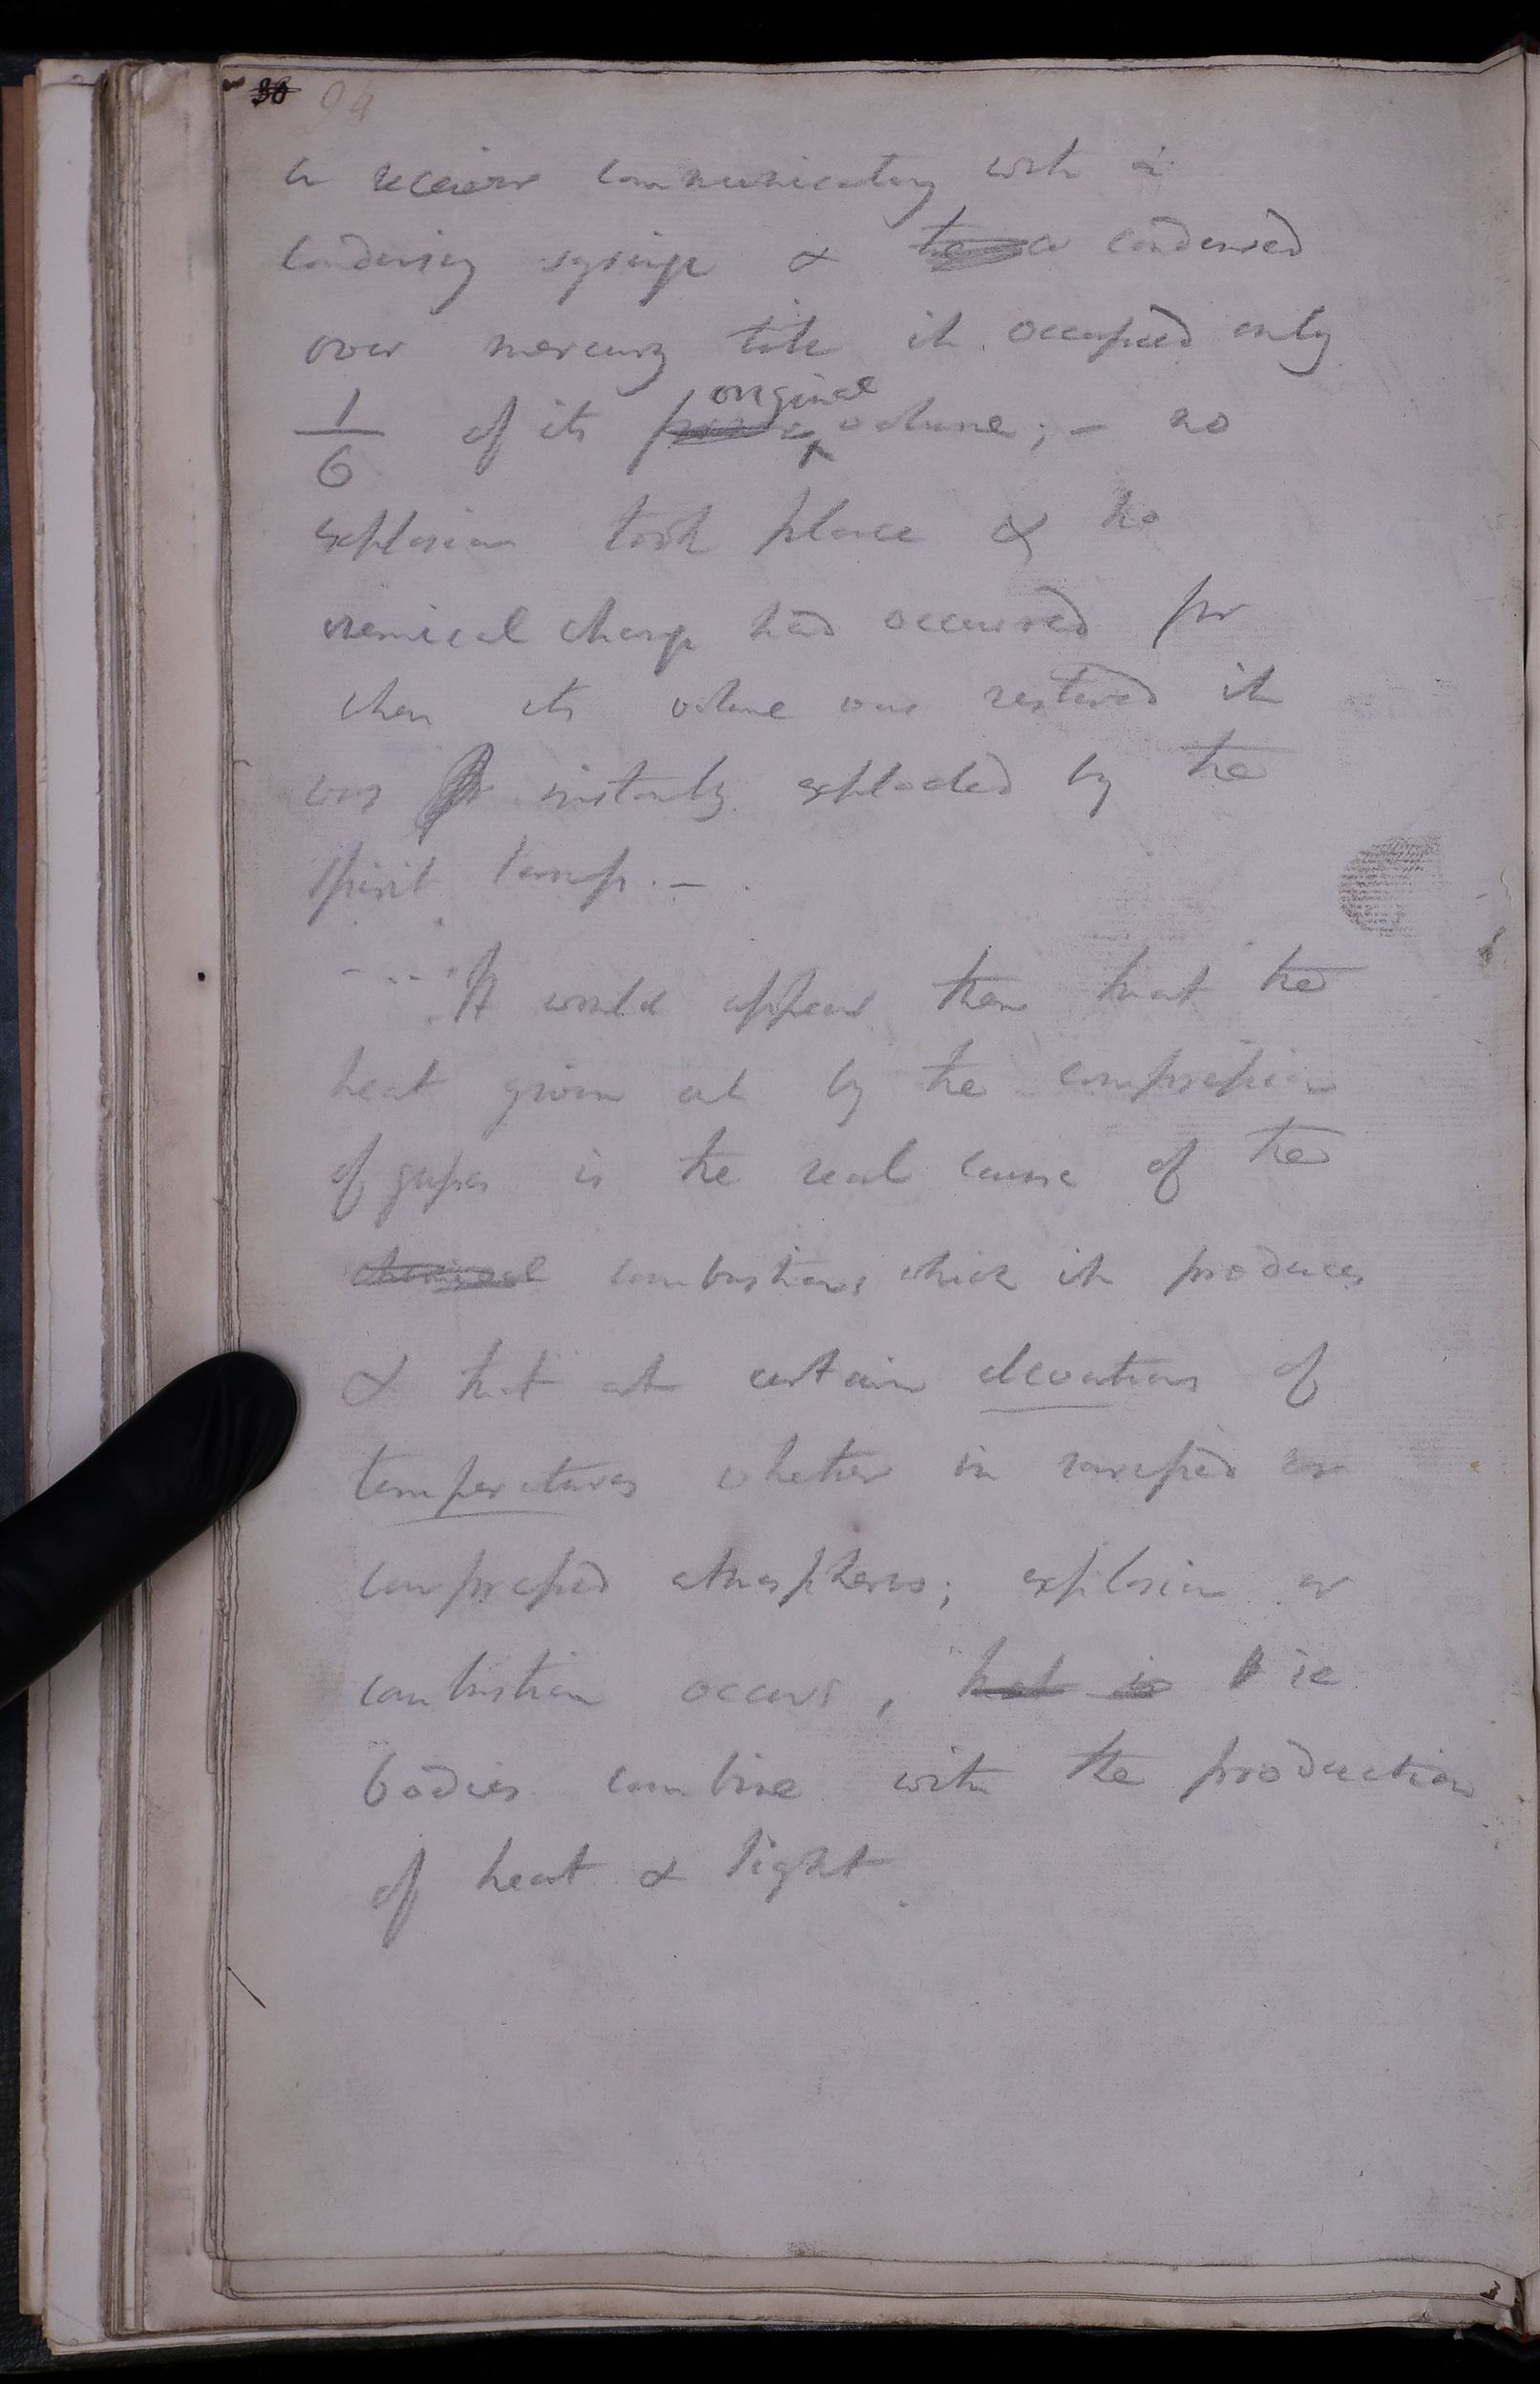 36 94
a receiver communicating with a
condensing syringe & condensed
over mercury till it occupied only
original
1/6 of its volume; - no
explosion took place & no
chemical change had occurred for
when its volume was restored it
was instantly exploded by the
spirit lamp. -
- - - It would appear then that the
heat given out by the compression
of gases is the real cause of the
chemical combustions which it produces
& that at certain elevations of
temperatures whether in rarefied or
compressed atmospheres; explosion or
combustion occurs, that is ie
bodies combine with the production
of heat & light